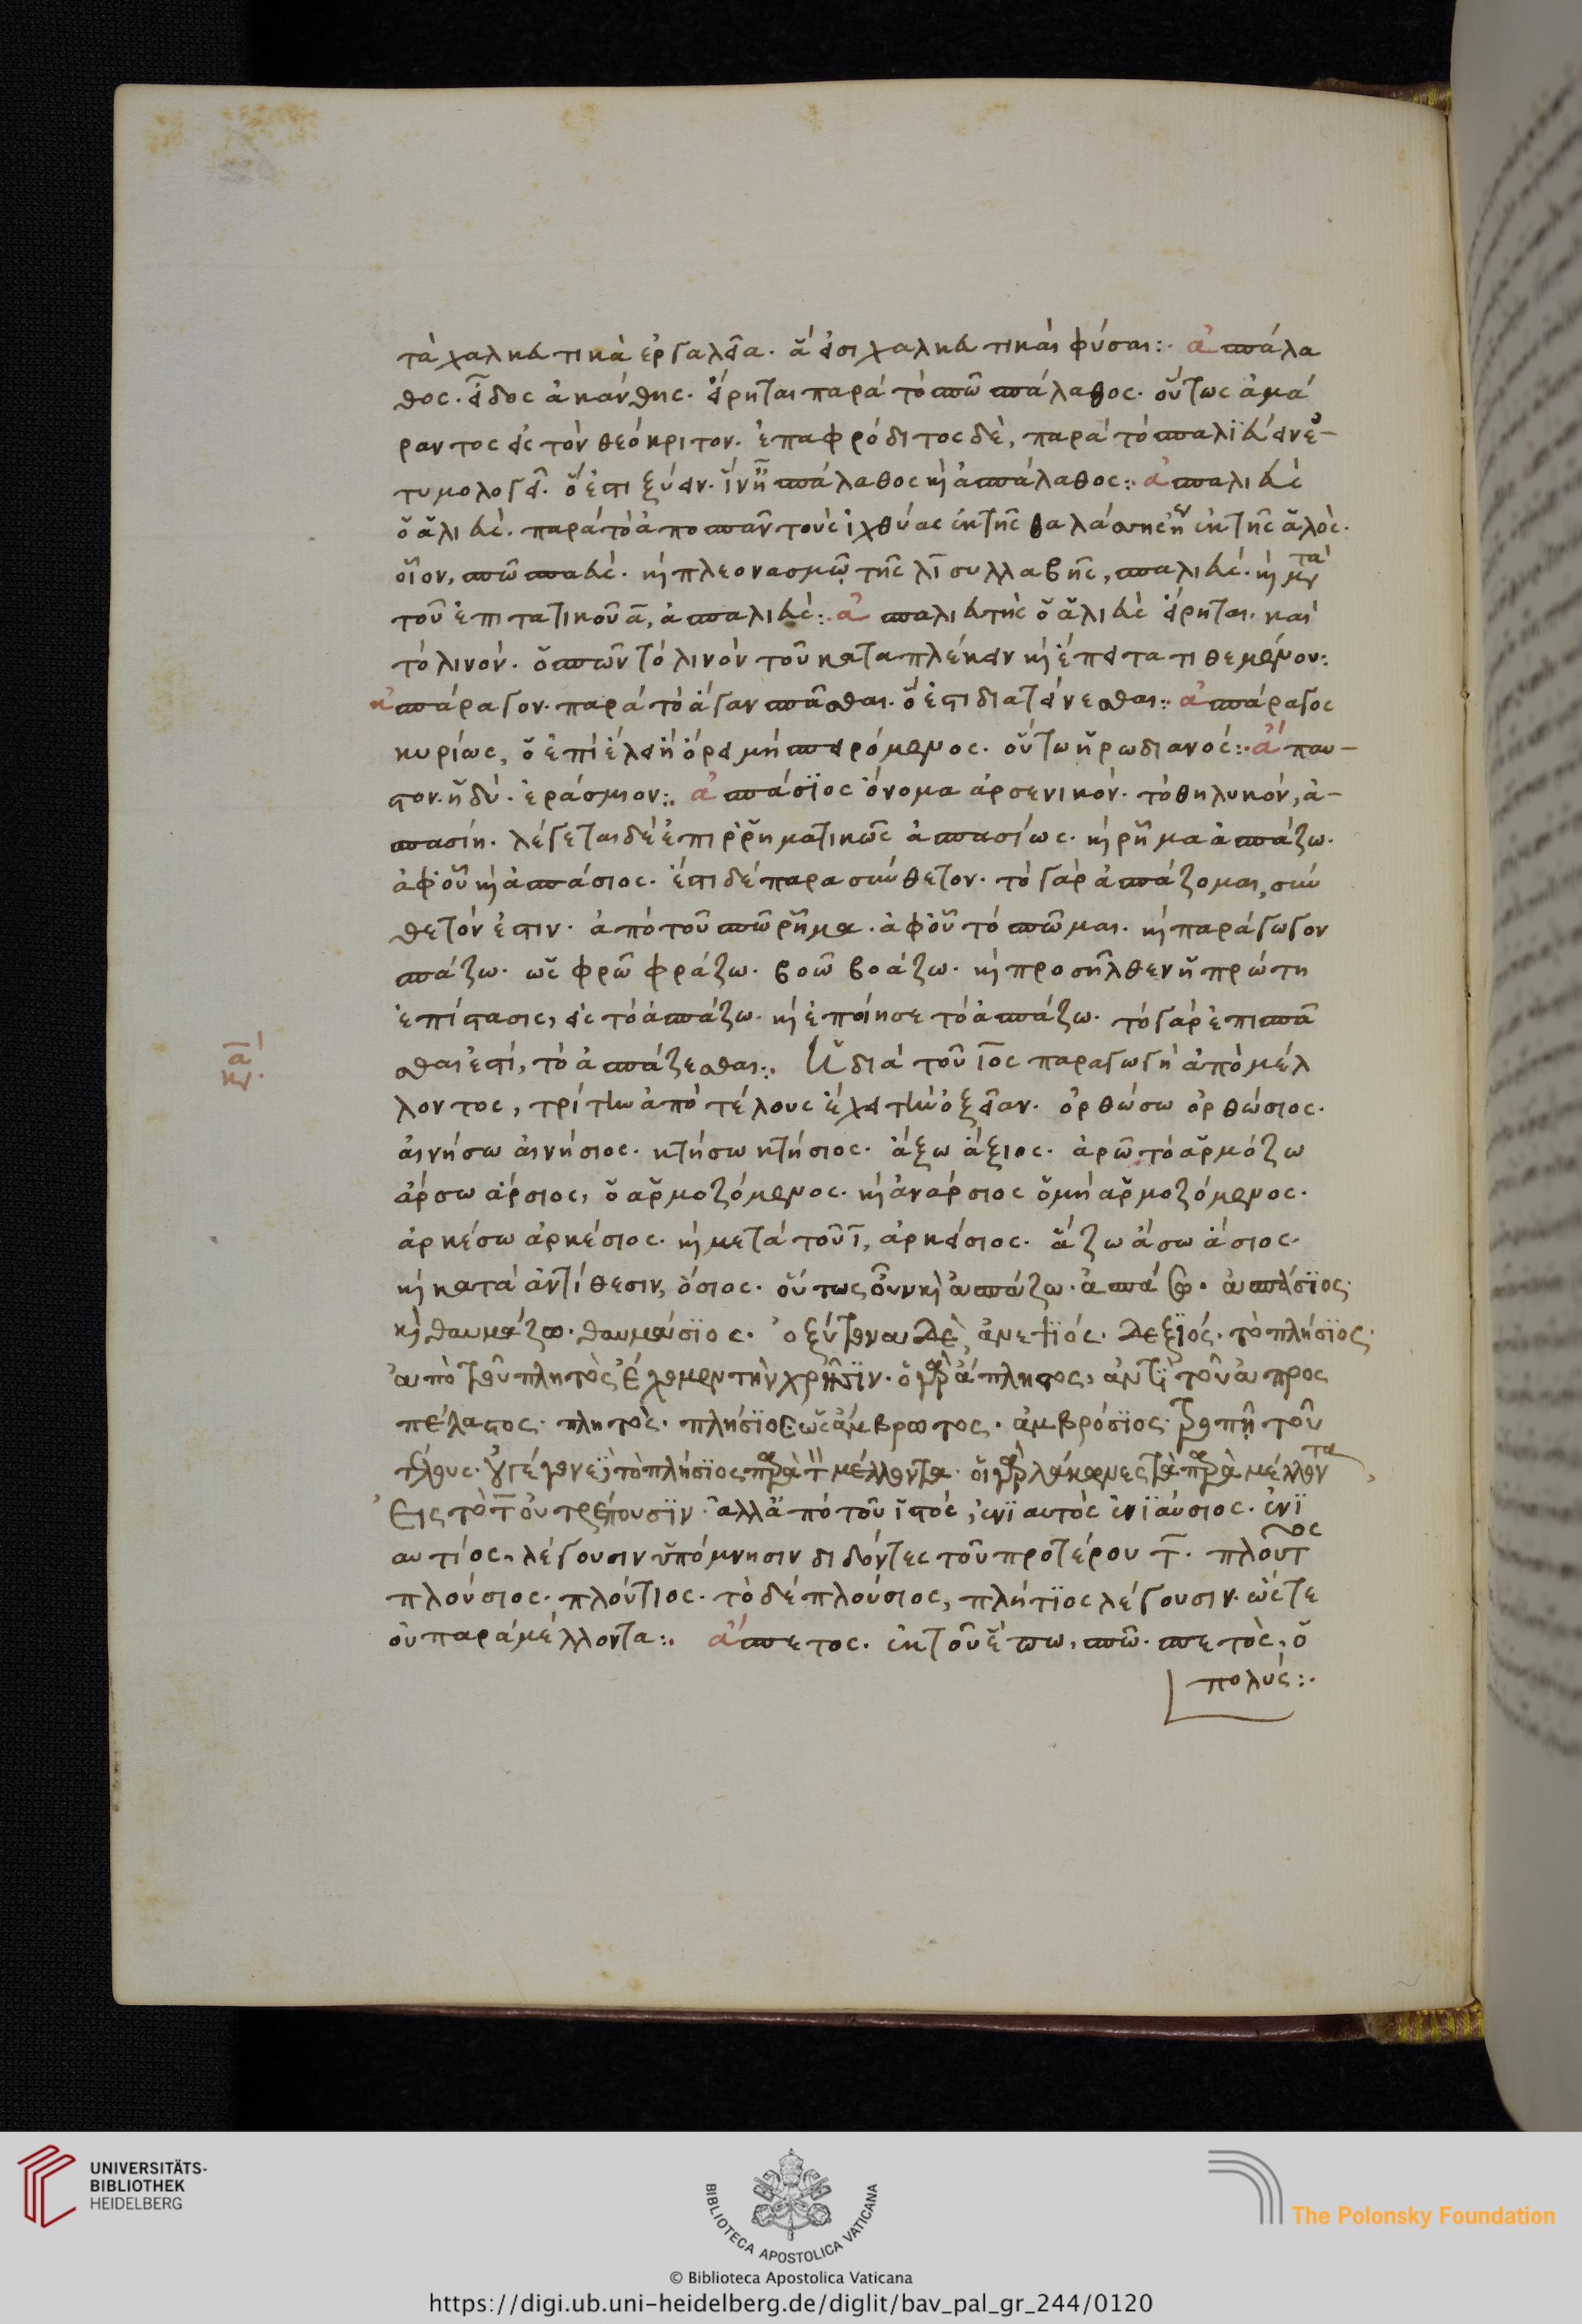 τὰ χαλκευτικὰ ἐργαλεῖα. ἅ εἰσι χαλκευτικαὶ φύσαι:· ἀσπάλα
θος. εἶδος ἀκάνθης. εἴρηται παρὰ τὸ σπῶ σπάλαθος. οὕτως ἀμά
ραντος εἰς τὸν θεόκριτον. ἐπαφρόδιτος δὲ, παρὰ τὸ σπαλϊεύειν ἐ-
τυμολογεῖ. ὅ ἐστι ξύειν. ἵν' ῇ σπάλαθος κὶ ἀσπάλαθος:· ἀσπαλιεὺς
ὁ ἁλιεὺς. παρὰ τὸ ἀποσπᾶν τοὺς ἰχθύας ἐκ τῆς θαλάσσης ἢ ἐκ τῆς ἁλὸς.
οἷον, σπῶ σπαεύς. κὶ πλεονασμῶ τῆς λῑ συλλαβῆς, σπαλιεύς. κὶ μετὰ
τοῦ ἐπιτατικοῦ α, ἀσπαλιεύς:· ἀσπαλιευτὴς ὁ ἁλιεὺς εἴρηται. καὶ
τὸ λινόν. ὁ σπῶν τὸ λινὸν τοῦ καταπλέκειν κὶ ἔπειτα τιθεμενον:
ἀσπάραγον. παρὰ τὸ ἄγαν σπᾶσθαι. ὅ ἐστι διατείνεσθαι:· ἀσπάραγος
κυρίως, ὁ ἐπὶ ἕλει ἢ ὄρει μὴ σπειρόμενος. οὕτω ἡρωδιανός:· ἄπαυ-
στον. ἡδύ. ἐράσμιον:· ἀσπάσϊος ὄνομα ἀρσενικόν. τὸ θηλυκόν, ἀ-
σπασίη. λέγεται δὲ ἐπιρρηματικῶς ἀσπασίως. κὶ ρῆμα ἀσπάζω.
ἀφ' οὗ κὶ ἀσπάσιος. ἔστι δὲ παρασύνθετον. τὸ γὰρ ἀσπάζομαι, σύν
θετόν ἐστιν. ἀπὸ τοῦ σπῶ ρῆμα. ἀφ' οὗ τὸ σπῶμαι. κὶ παράγωγον
σπάζω. ὡς φρῶ φράζω. βοῶ βοάζω. κὶ προσῆλθεν ἡ πρώτη
ἐπίστασις, εἰς τὸ ἀσπάζω. κὶ ἐποίησε τὸ ἀσπάζω. τὸ γὰρ ἐπισπᾶ
σθαι ἐστί, τὸ ἀσπάζεσθαι:· Ἡ διὰ τοῦ ῑος παραγωγὴ ἀπὸ μέλ
λοντος, τρίτην ἀπὸ τέλους ἔχει τὴν ὀξεῖαν. ὀρθώσω ὀρθώσιος.
αἰνήσω αἰνήσιος. κτήσω κτήσιος. ἄξω ἄξιος. ἀρῶ τὸ ἁρμόζω
ἄρσω ἄρσιος, ὁ ἁρμοζόμενος. κὶ ἀνάρσιος ὁ μὴ ἁρμοζόμενος.
ἀρκέσω ἀρκέσιος. κὶ μετὰ τοῦ ῑ, ἀρκείσιος. ἅζω ἅσω ἅσιος.
κὶ κατὰ ἀντίθεσιν, ὅσιος. οὕτως οὖν κὶ ἀσπάζω. ἀσπάσω. ἀσπάσϊος.
κὶ θαυμάζω. θαυμάσϊος. ὀξύτονα δὲ, ἀνεψϊός. δεξϊός. τὸ πλήσϊος.
ἀπὸ τοῦ πλητὸς ἔχομεν τὴν χρῆσϊν. ὁ γὰρ ἄπληστος, ἀντὶ τοῦ ἀπρος
πέλαστος. πλητὸς. πλήσϊος ὡς ἄμβροτος. ἀμβρόσϊος. τροπῆ τοῦ
τέλους. γέγονε τὸ πλήσϊος παρὰ τ μέλλοντα. οἱ γὰρ λάκωνες τὰ παρὰ μέλλοντα
εἰς τὸ τ οὐ τρέπουσϊν. ἀλλ' ἀπὸ τοῦ ἱστός, ἐνϊαυτὸς ἐνϊαύσιος. ἐνϊ
αυτίος, λέγουσιν ὑπόμνησιν διδόντες τοῦ προτέρου τ. πλοῦτος
πλούσιος. πλούτιος. τὸ δὲ πλούσιος, πλήτϊος λέγουσιν. ὥστε
οὐ παρὰ μέλλοντα:· ἄσπετος. ἐκ τοῦ ἕπω, σπῶ. σπετὸς, ὁ
πολύς:·
UNIVERSITÄTS-
BIBLIOTHEK
HEIDELBERG
BIBLIOTECA APOSTOLICA VATICANA
The Polonsky Foundation
© Biblioteca Apostolica Vaticana
https://digi.ub.uni-heidelberg.de/diglit/bav_pal_gr_244/0120